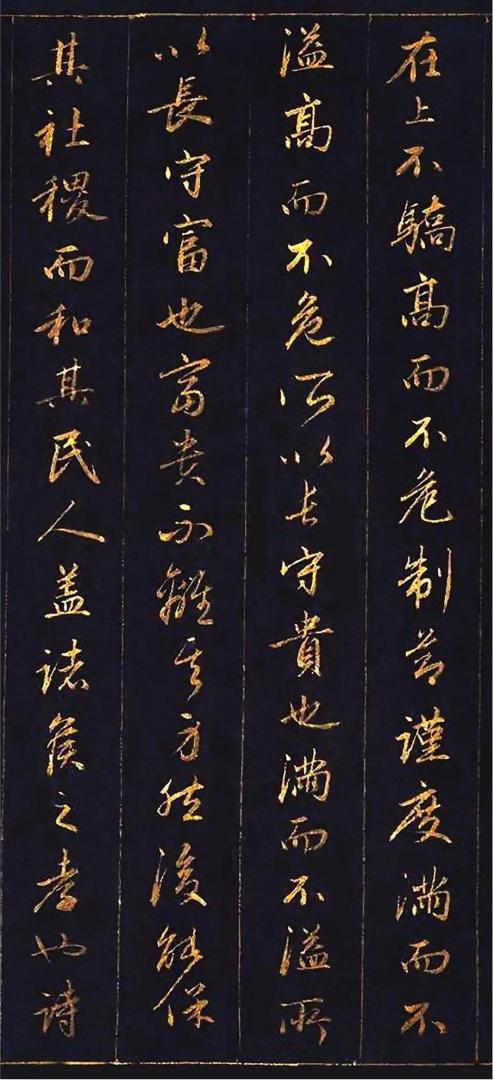 在上不驕高而不危制節謹度滿而不
溢高而不危所以長守貴也滿而不溢所
以長守富也富貴不離其身然後能保
其社稷而和其民人蓋諸侯之孝也詩